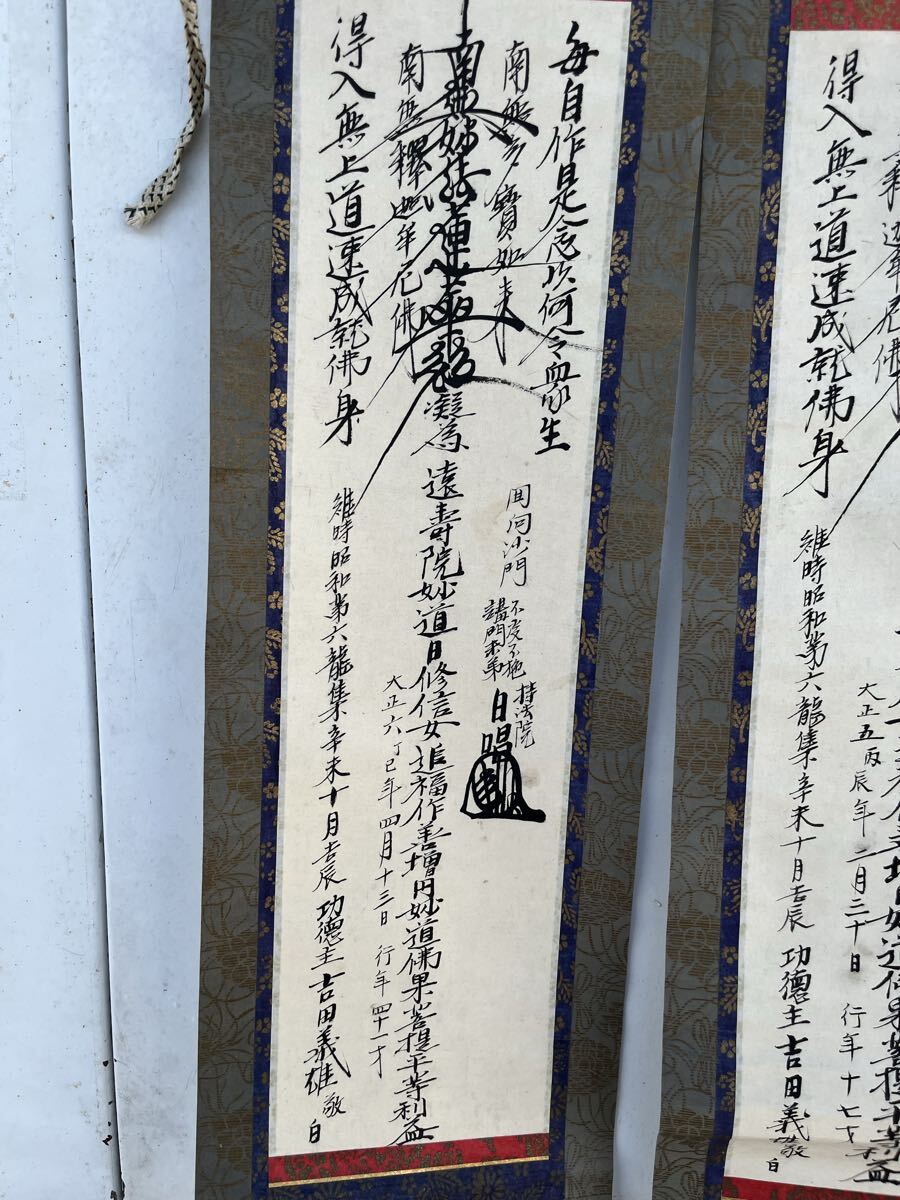 毎自作是念以何令衆生
南無多寶如来
南無妙法蓮華經
南無釋迦牟尼佛
得入無上道速成就佛身
凝為遠壽院妙道日修信女追福作善増円妙道佛果菩提平等利益
大正六丁巳年四月十三日 行年四十一才
沙門
不受不施
講門末弟
持法院
日
維時昭和第六龍集辛未十月壬辰 功德主吉田義雄敬白
釋迦牟尼佛
得入無上道速成就佛身
妙道佛果菩提平等利益
大正五丙辰年二月三十日 行年十七才
維時昭和第六龍集辛未十月壬辰 功德主吉田義敬白